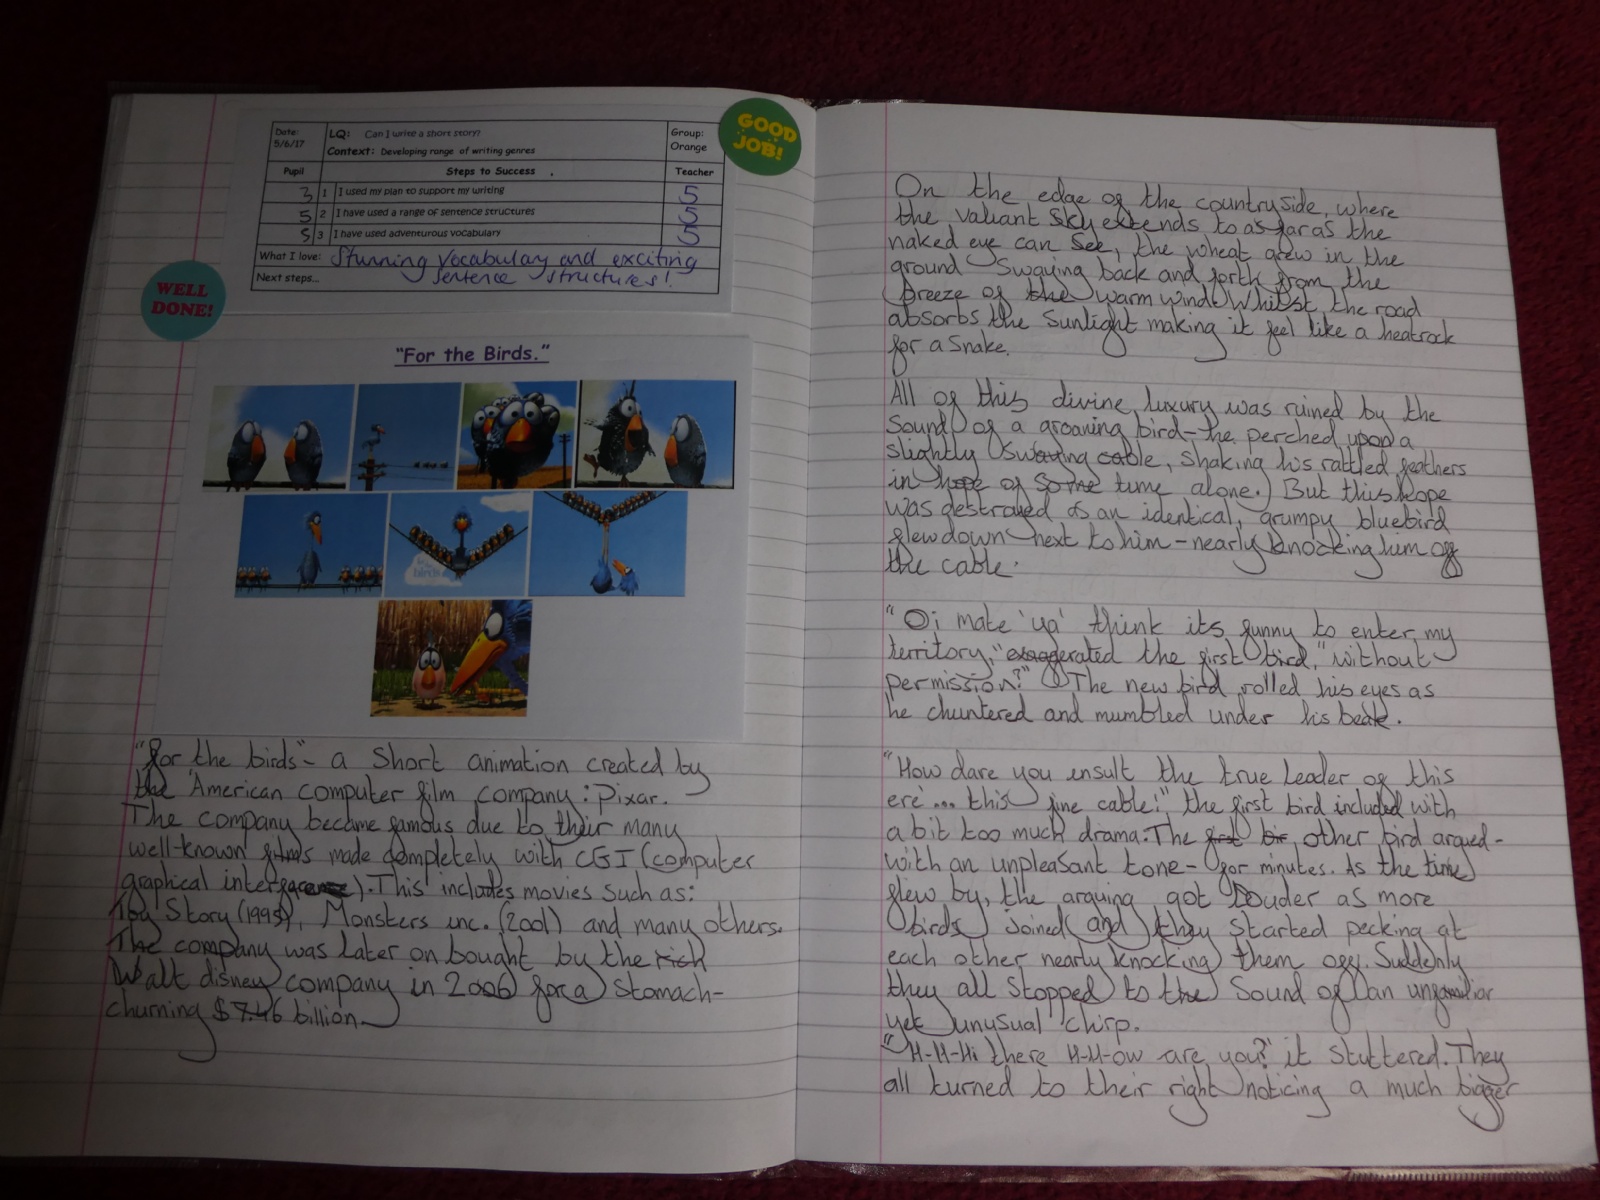 Date: 5/6/17
LQ: Can I write a short story?
Context: Developing range of writing genres
Group: Orange
Pupil
Steps to Success
Teacher
3 1 I used my plan to support my writing 5
5 2 I have used a range of sentence structures 5
5 3 I have used adventurous vocabulary 5
What I love: Stunning vocabulary and exciting
sentence structures!
Next steps...
GOOD JOB!
WELL DONE!
"For the Birds."
"for the birds"- a short animation created by
the American computer film company: Pixar.
The company became famous due to their many
well-known films made completely with CGI (computer
graphical interface). This includes movies such as:
Toy Story (1995), Monsters inc. (2001) and many others.
The company was later on bought by the rich
Walt disney company in 2006 for a stomach-
churning $7.46 billion.
On the edge of the countryside, where
the valiant sky extends to as far as the
naked eye can see, the wheat grew in the
ground swaying back and forth from the
breeze of the warm wind. Whilst the road
absorbs the sunlight making it feel like a heatrock
for a snake.
All of this divine luxury was ruined by the
sound of a groaning bird-he perched upon a
slightly swaying cable, shaking his rattled feathers
in hope of some time alone. But this hope
was destroyed as an identical, grumpy bluebird
flew down next to him - nearly knocking him off
the cable.
"Oi mate 'ya' think its funny to enter my
territory," exaggerated the first bird, "without
permission?" The new bird rolled his eyes as
he chuntered and mumbled under his beak.
"How dare you insult the true leader of this
ere'... this fine cable!" the first bird included with
a bit too much drama. The first bir other bird argued-
with an unpleasant tone- for minutes. As the time
flew by, the arguing got Louder as more
birds joined and they started pecking at
each other nearly knocking them off. Suddenly
they all stopped to the sound of an unfamiliar
yet unusual chirp.
"H-H-Hi there H-H-ow are you?" it stuttered. They
all turned to their right noticing a much bigger